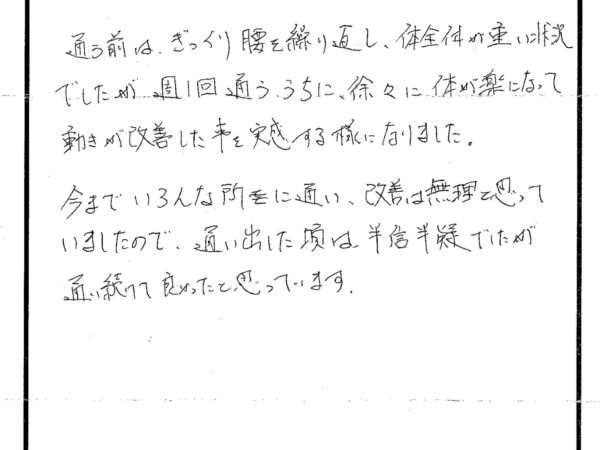 通う前は、ぎっくり腰を繰り返し、体全体が重い状況
でしたが週1回通ううちに、徐々に体が楽になって
動きが改善した事を実感する様になりました。
今までいろんな所に通い、改善は無理と思って
いましたので、通い出した頃は半信半疑でしたが
通い続けて良かったと思っています。